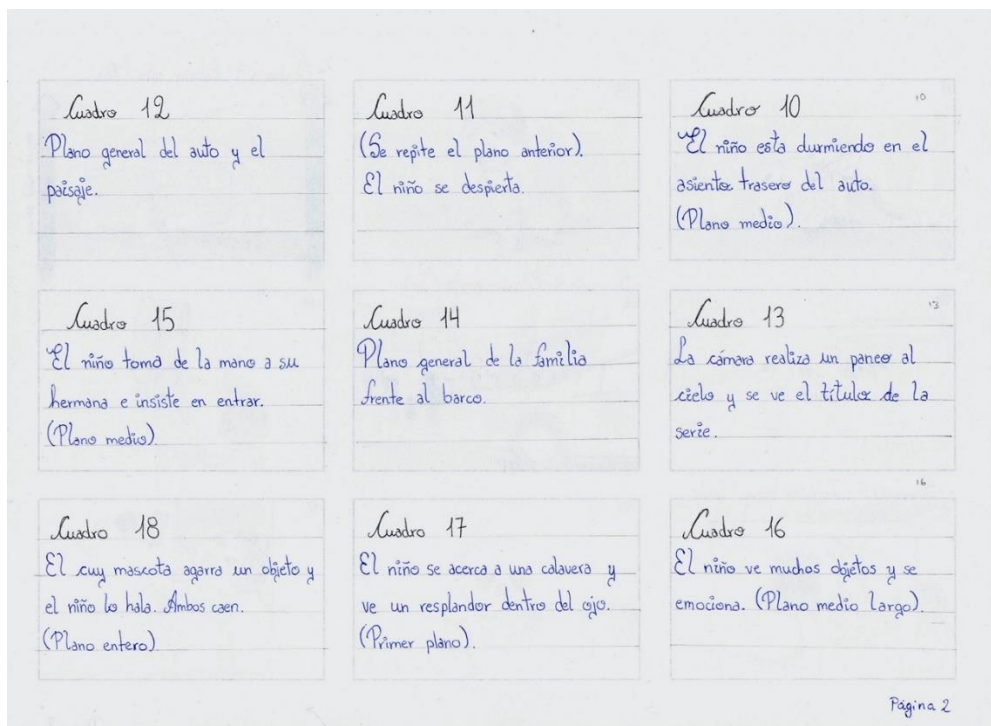 Cuadro 12
Plano general del auto y el
paisaje.
Cuadro 11
(Se repite el plano anterior).
El niño se despierta.
10
Cuadro 10
El niño esta durmiendo en el
asiento trasero del auto.
(Plano medio).
Cuadro 15
El niño toma de la mano a su
hermana e insiste en entrar.
(Plano medio)
Cuadro 14
Plano general de la familia
frente al barco.
13
Cuadro 13
La cámara realiza un paneo al
cielo y se ve el título de la
serie.
Cuadro 18
El cuy mascota agarra un objeto y
el niño lo hala. Ambos caen.
(Plano entero)
Cuadro 17
El niño se acerca a una calavera y
ve un resplandor dentro del ojo.
(Primer plano).
16
Cuadro 16
El niño ve muchos objetos y se
emociona. (Plano medio largo).
Página 2